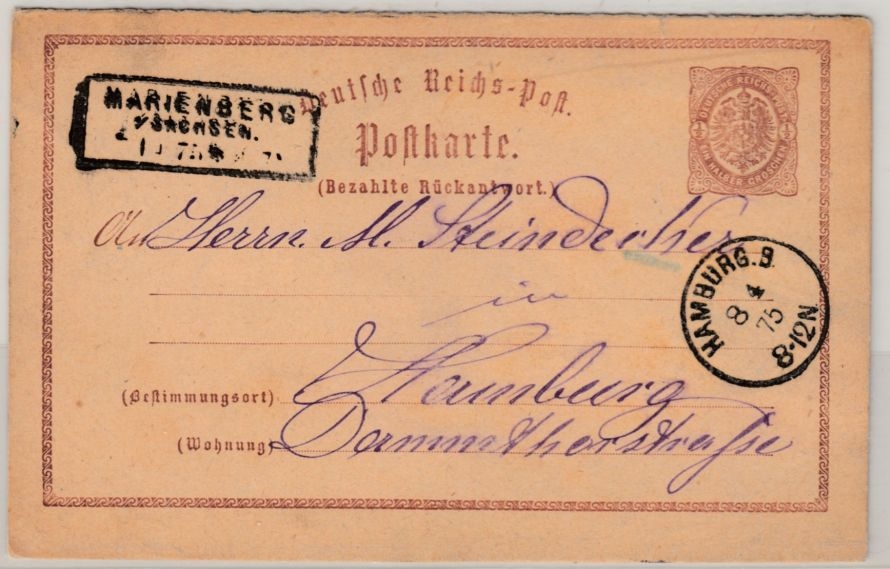 Deutsche Reichs-Post.
Postkarte.
(Bezahlte Rückantwort.)
DEUTSCHE REICHS-POST
1/2 EIN HALBER GROSCHEN 1/2
MARIENBERG
i/SACHSEN.
An Herrn. M. Steindecker
in
(Bestimmungsort) Hamburg
(Wohnung) Dammthorstrasse
HAMBURG. B.
8 4
75
8-12N